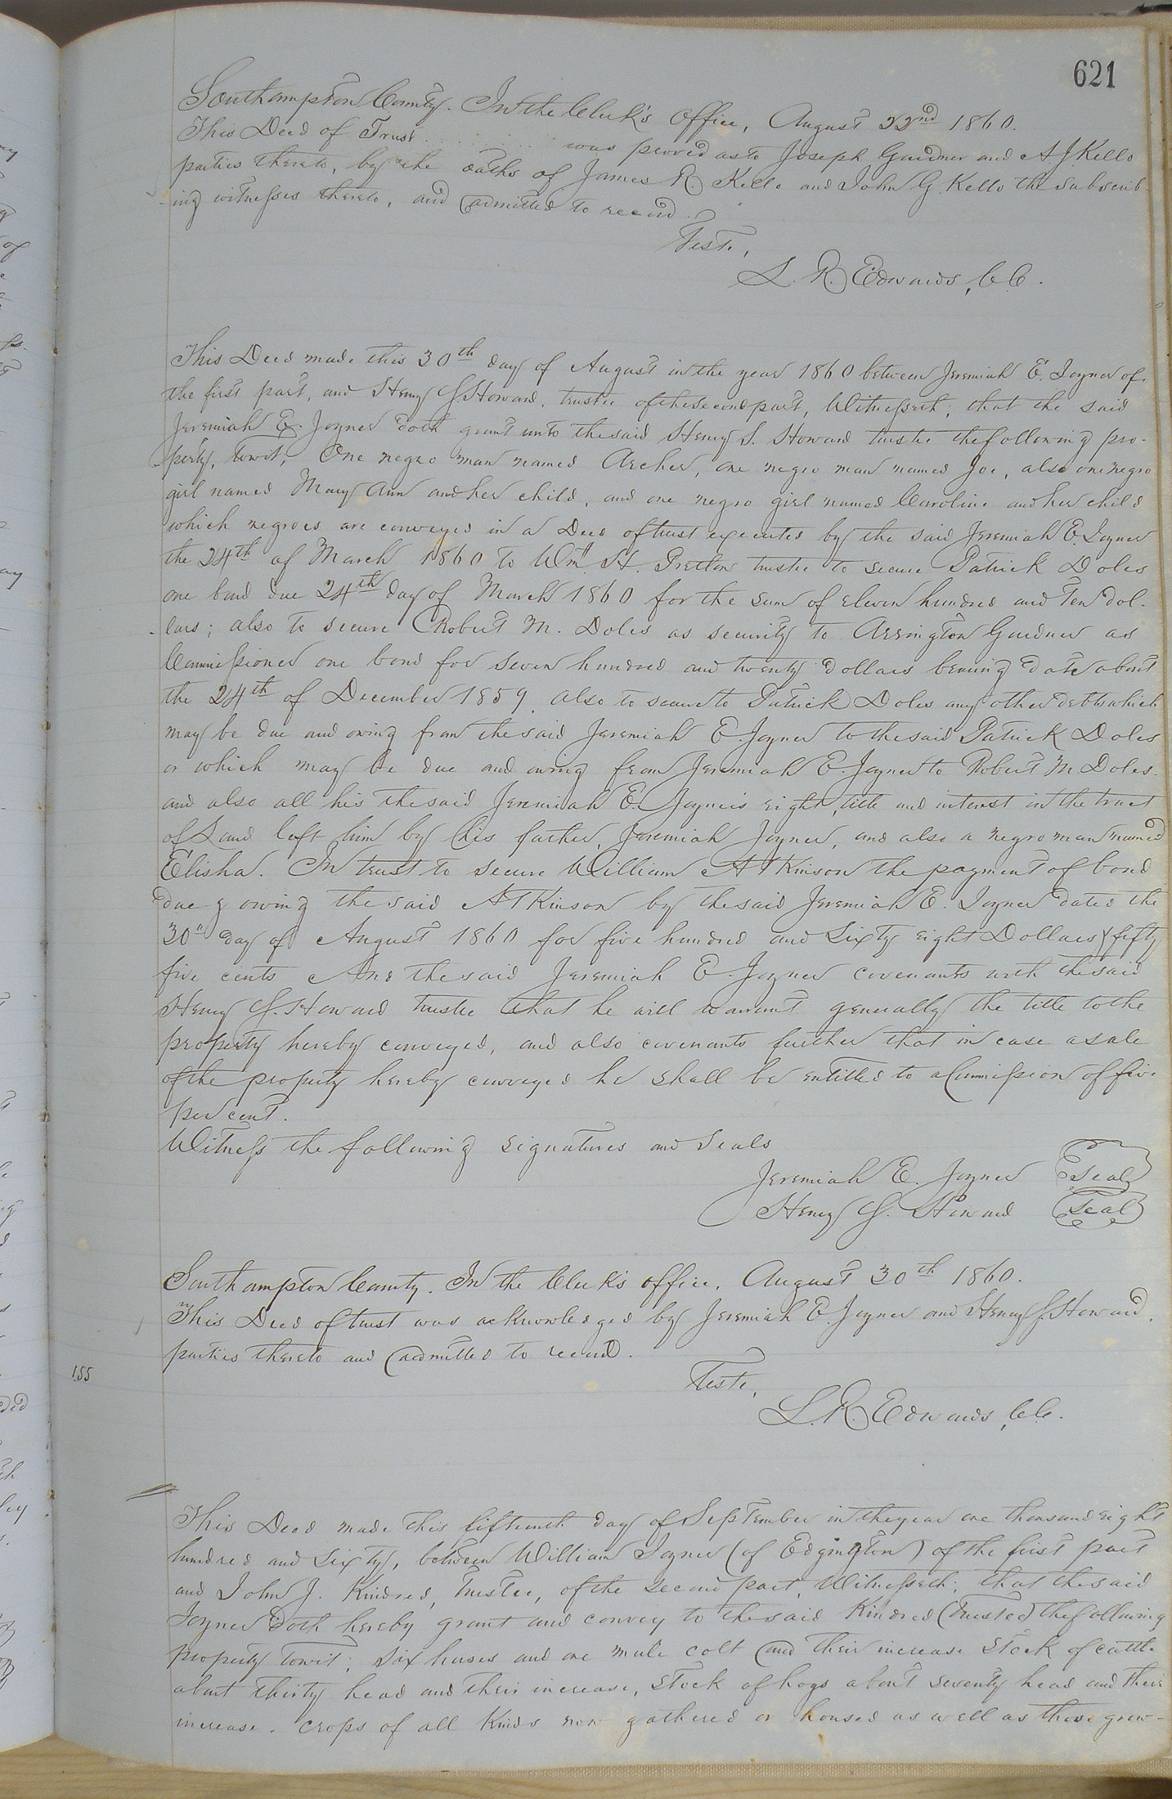 621
Southampton County. In the Clerk's Office, August 22nd 1860.
This Deed of Trust was proved as to Joseph Gardner and A J Kello
parties thereto, by the oaths of James R. Kello and John G. Kello the subscrib-
ing witnesses thereto, and admitted to record.
Teste,
L. R. Edwards, C.C.
This Deed made this 30th day of August in the year 1860 between Jeremiah E. Joyner of
the first part, and Henry S. Howard, trustee of the second part, Witnesseth, that the said
Jeremiah E. Joyner doth grant unto the said Henry S. Howard trustee the following pro-
perty, towit, One negro man named Archer, one negro man named Joe, also one negro
girl named Mary Ann and her child, and one negro girl named Caroline and her child
which negroes are conveyed in a Deed of trust executed by the said Jeremiah E. Joyner
the 24th of March 1860 to Wm. H. Pretlow trustee to secure Patrick Doles
one bond due 24th day of March 1860 for the sum of eleven hundred and Ten dol-
lars; also to secure Robert M. Doles as security to Arrington Gardner as
Commissioner one bond for seven hundred and twenty Dollars bearing date about
the 24th of December 1859, also to secure to Patrick Doles any other debts which
may be due and owing from the said Jeremiah E. Joyner to the said Patrick Doles
or which may be due and owing from Jeremiah E. Joyner to Robert M Doles.
and also all his the said Jeremiah E. Joyner's right, title and interest in the tract
of Land left him by his father, Jeremiah Joyner, and also a negro man named
Elisha. In trust to secure William Atkinson the payment of bond
due & owing the said Atkinson by the said Jeremiah E. Joyner dated the
30th day of August 1860 for five hundred and Sixty eight Dollars & fifty
five cents And the said Jeremiah E. Joyner covenants with the said
Henry S. Howard trustee that he will warrant generally the title to the
property hereby conveyed, and also covenants further that in case a sale
of the property hereby conveyed he shall be entitled to a Commission of five
per cent.
Witness the following signatures and seals
Jeremiah E. Joyner Seal
Henry S. Howard Seal
Southampton County. In the Clerk's office, August 30th 1860.
This Deed of trust was acknowledged by Jeremiah E. Joyner and Henry S. Howard,
parties thereto and admitted to record.
155
Teste,
L. R. Edwards, C.C.
This Deed made this fifteenth day of September in the year one thousand eight
hundred and Sixty, between William Joyner (of Edgington) of the first part
and John J. Kindred, Trustee, of the second part, Witnesseth; that the said
Joyner doth hereby grant and convey to the said Kindred (Trustee) the following
property towit; Six horses and one mule colt and their increase Stock of cattle
about thirty head and their increase, Stock of hogs about seventy head and their
increase. crops of all kinds now gathered or housed as well as those grow-